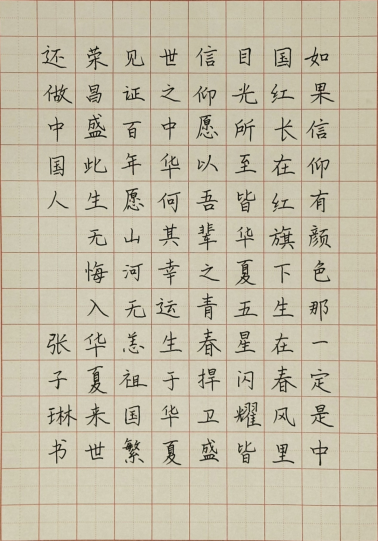 如果信仰有颜色那一定是中
国红长在红旗下生在春风里
目光所至皆华夏五星闪耀皆
信仰愿以吾辈之青春捍卫盛
世之中华何其幸运生于华夏
见证百年愿山河无恙祖国繁
荣昌盛此生无悔入华夏来世
还做中国人 张子琳书